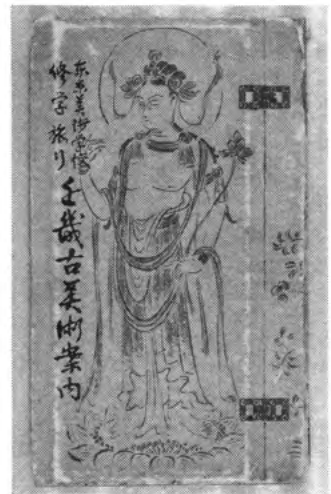 東京美術学校
修学旅行
近畿古美術案内